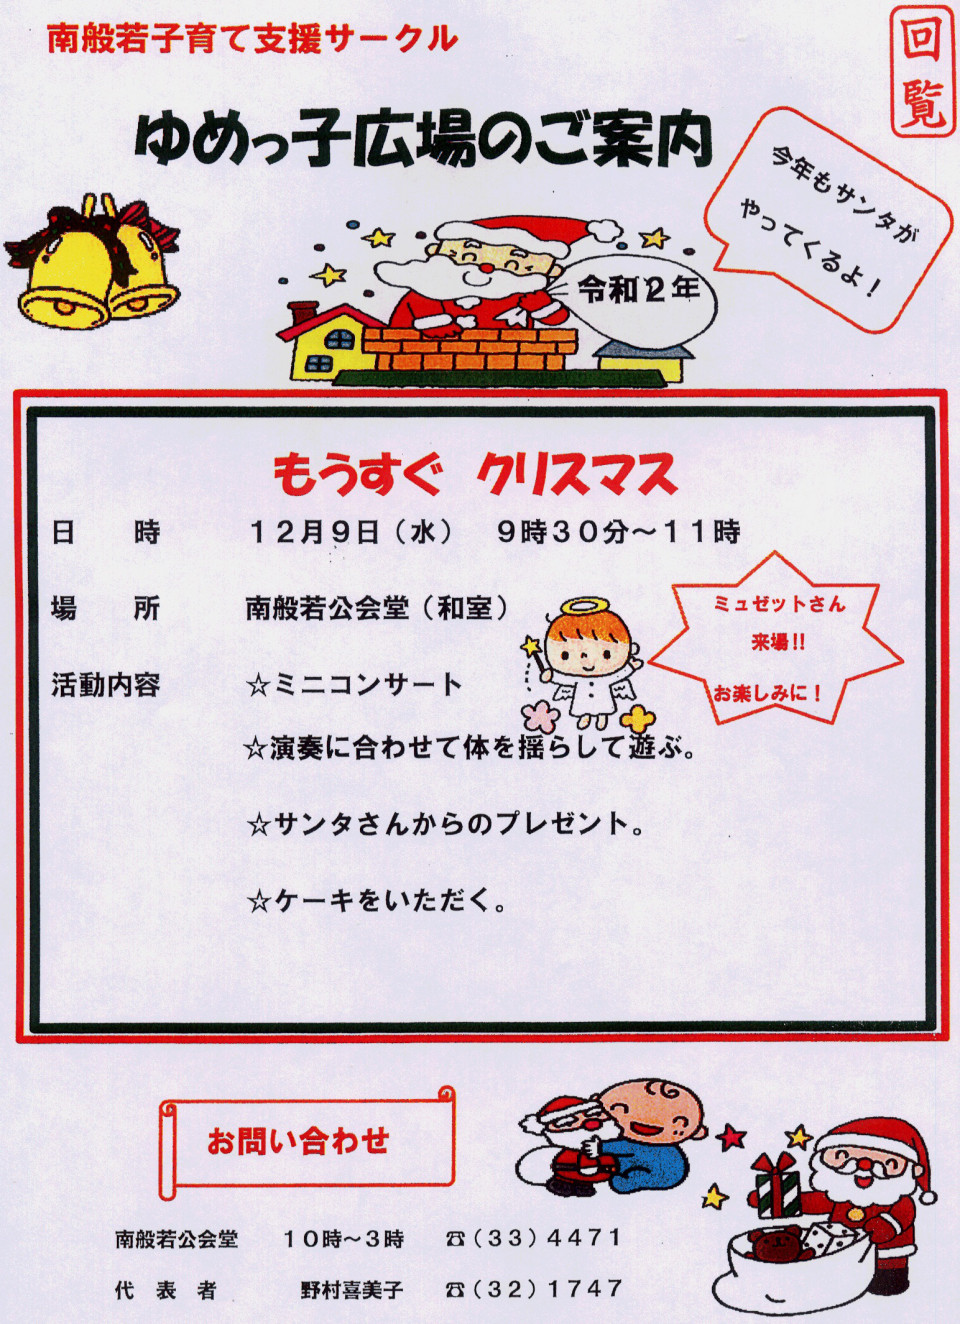 南般若子育て支援サークル
回覧
ゆめっ子広場のご案内
今年もサンタが
やってくるよ！
令和２年
もうすぐ クリスマス
日 時 １２月９日（水） ９時３０分～１１時
場 所 南般若公会堂（和室）
ミュゼットさん
来場!!
お楽しみに！
活動内容 ☆ミニコンサート
☆演奏に合わせて体を揺らして遊ぶ。
☆サンタさんからのプレゼント。
☆ケーキをいただく。
お問い合わせ
南般若公会堂 １０時～３時 ☎（３３）４４７１
代 表 者 野村喜美子 ☎（３２）１７４７